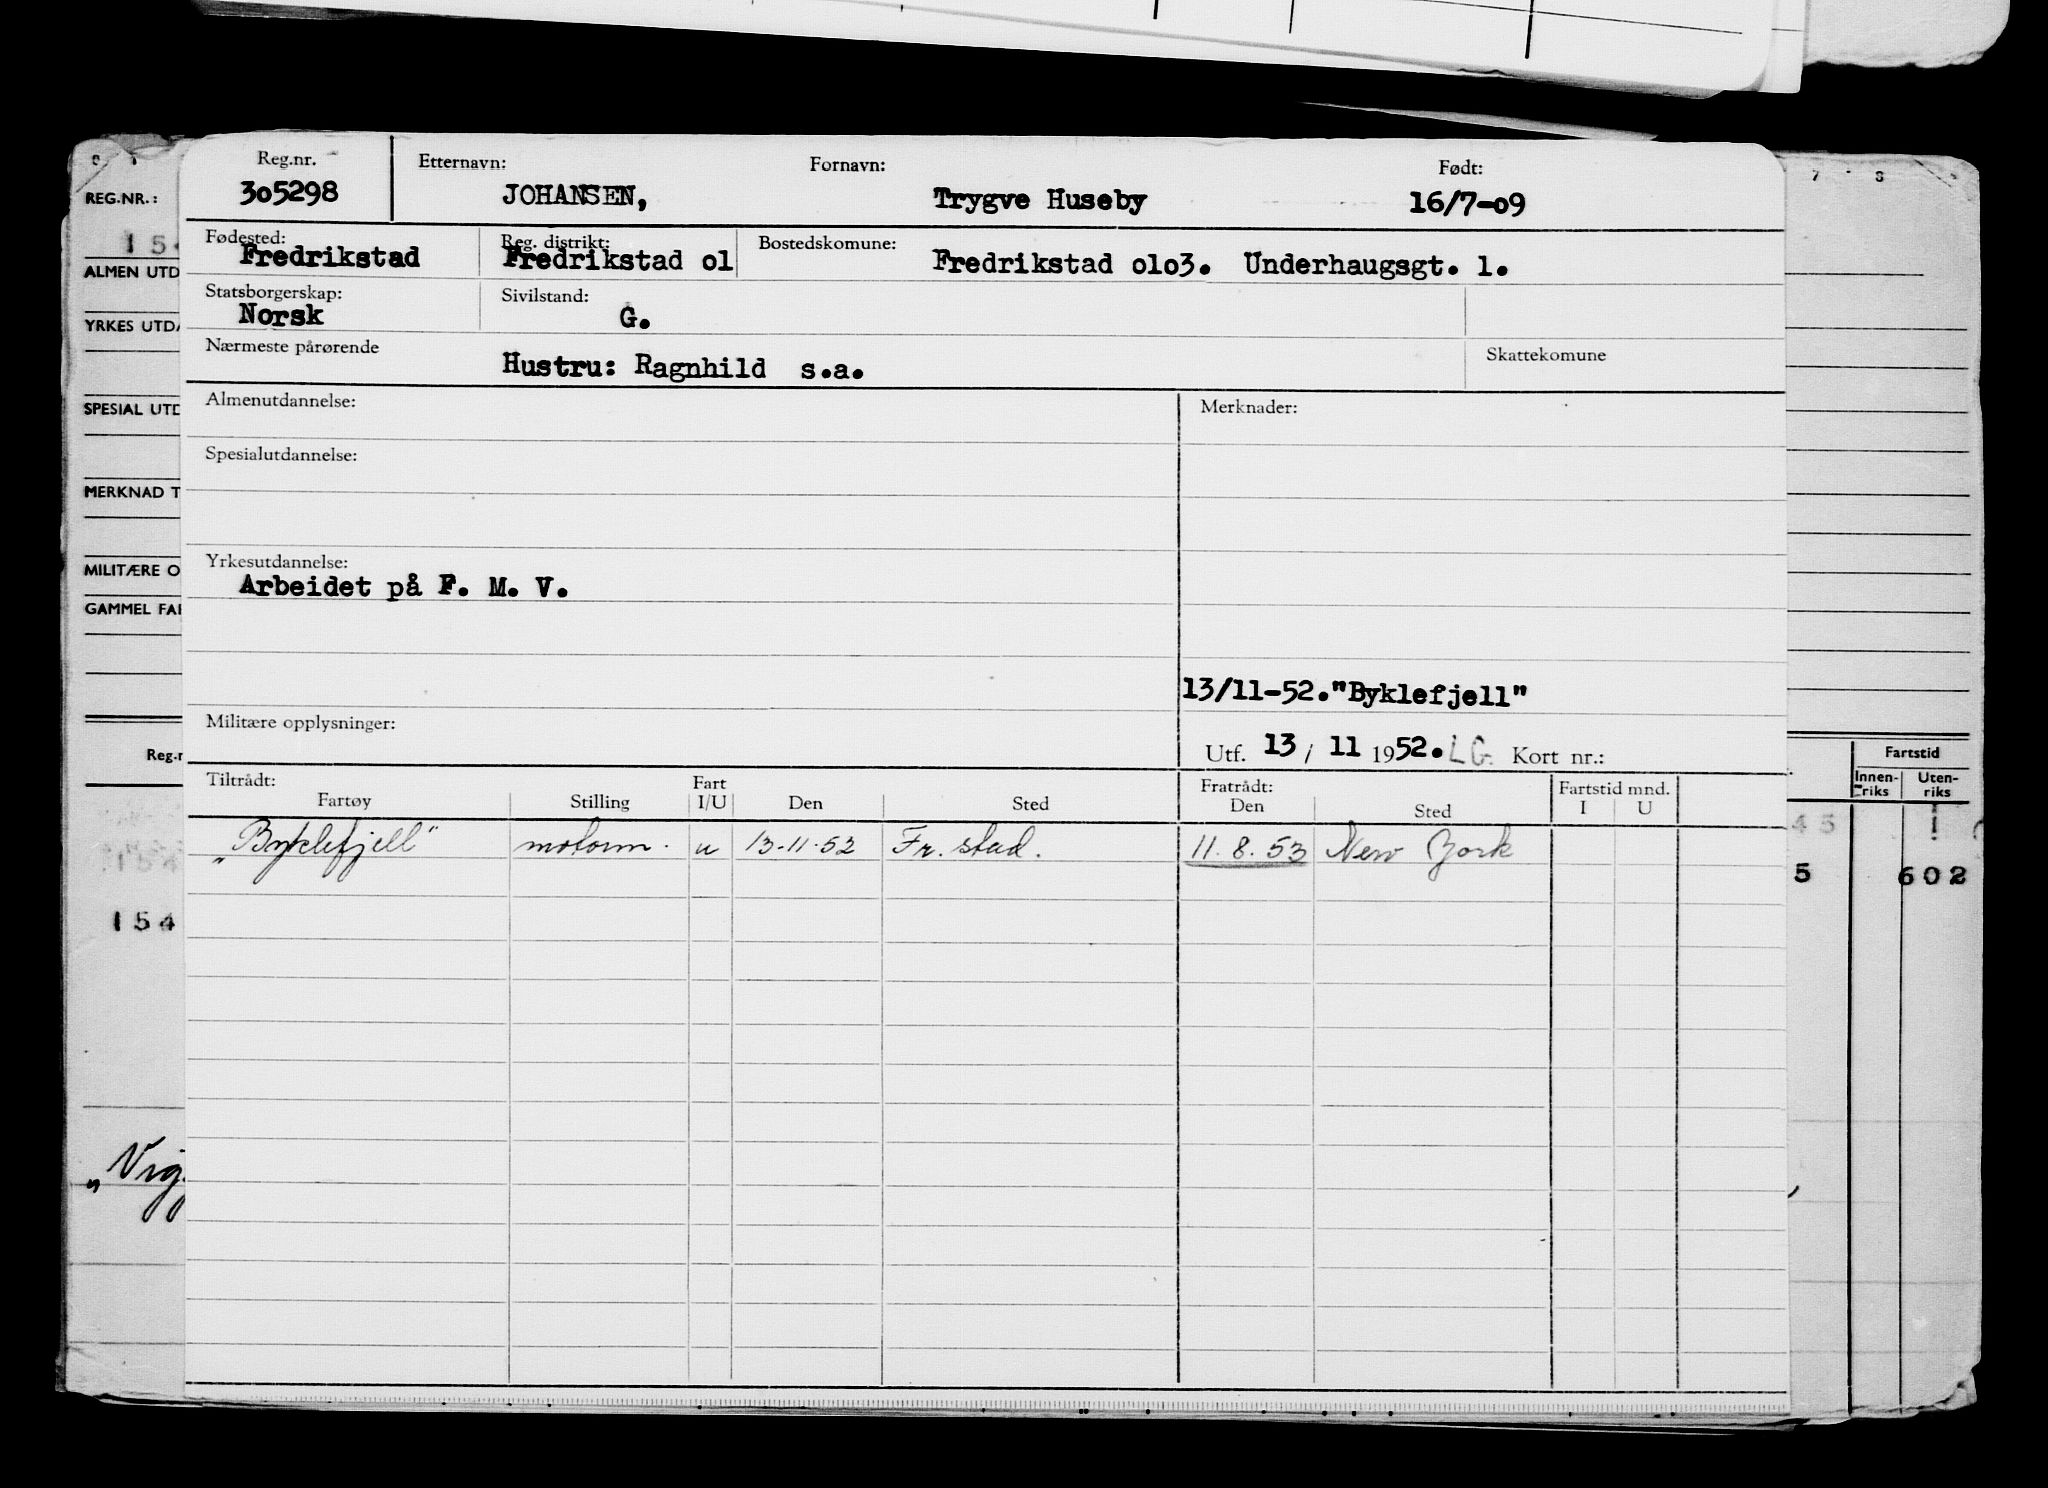 Reg.nr. Etternavn: Fornavn: Født:
305298 JOHANSEN, Trygve Huseby 16/7-09
Fødested: Reg. distrikt: Bostedskomune:
Fredrikstad Fredrikstad ol Fredrikstad olo3. Underhaugsgt. 1.
Statsborgerskap: Sivilstand:
Norsk G.
Nærmeste pårørende Skattekomune
Hustru: Ragnhild s.a.
Almenutdannelse: Merknader:
Spesialutdannelse:
Yrkesutdannelse:
Arbeidet på F. M. V.
13/11-52."Byklefjell"
Militære opplysninger:
Utf. 13 / 11 1952. LG. Kort nr.:
Tiltrådt: Fart Fratrådt: Fartstid mnd.
Fartøy Stilling I/U Den Sted Den Sted I U
„Byklefjell" motorm. u 13-11-52 Fr. stad. 11.8.53 New York
REG.NR.:
154
ALMEN UTD
YRKES UTDA
SPECIAL UTD
MERKNAD T
MILITÆRE O
GAMMEL FAR
Reg.n
154
„Vig
7 8
Fartstid
Innen-riks Uten-riks
45 1
5 602